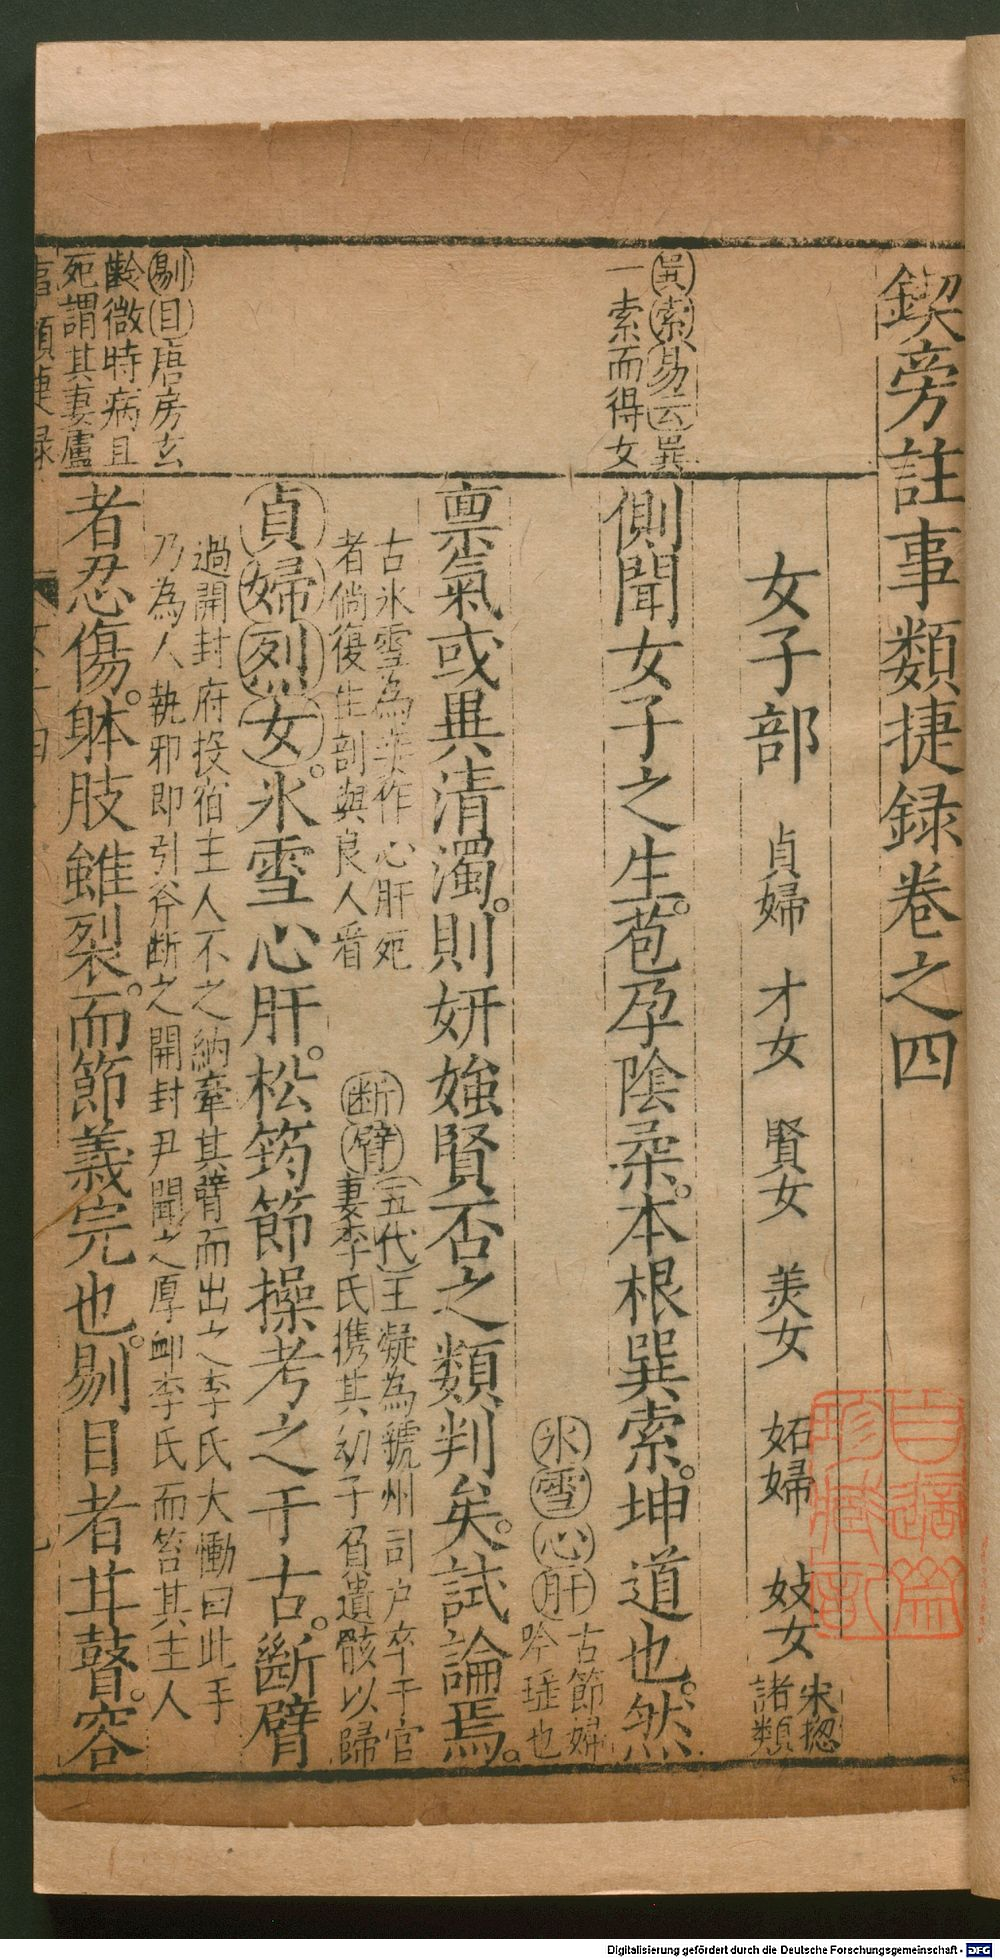 鍥旁註事類捷録卷之四
女子部 貞婦 才女 賢女 美女 妬婦 妓女 末揔諸類
巽索易云巽
一索而得女
側聞女子之生。苞孕陰柔。本根巽索。坤道也。然
氷雪心肝古節婦
吟璡也
禀氣或異清濁。則妍媸賢否之類判矣。試論焉。
古氷雪為美作心肝死
者倘復生剖與良人看
断臂五代王凝為虢州司户卒于官
妻李氏携其幼子負遺骸以歸
貞婦烈女。氷雪心肝。松筠節操考之千古。斷臂
過開封府投宿主人不之納牽其臂而出之李氏大慟曰此手
乃為人執邪即引斧断之開封尹聞之厚卹李氏而笞其主人
剔目唐房玄
齡微時病且
死謂其妻盧
者忍傷。躰肢雖裂。而節義完也。剔目者甘瞽。容
事類捷録
Digitalisierung gefördert durch die Deutsche Forschungsgemeinschaft - DFG